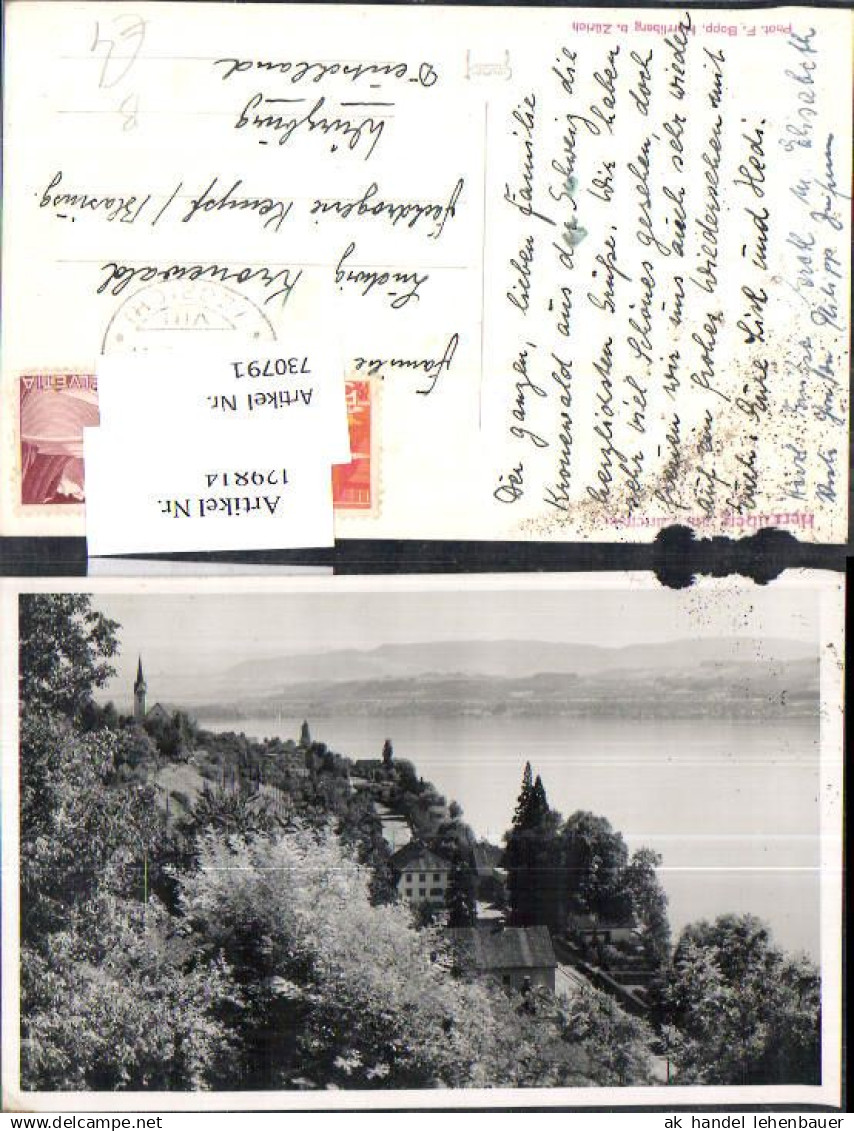 Phot. F. Bopp, Herrliberg b. Zürich
Der ganzen, lieben Familie
Kronewald aus der Schweiz die
herzlichsten Grüße. Wir haben
sehr viel Schönes gesehen, doch
freuen wir uns auch sehr wieder
auf ein frohes Wiedersehen mit
Euch. Eure Lisl und Hedi.
Elisabeth
Philipp
Familie
Ludwig Kronewald
Fachdrogerie Kempf /
Würzburg
Deutschland
VIII
HELVETIA
Artikel Nr.
730791
Artikel Nr.
129814
Herrliberg am Zürichsee
ak handel lehenbauer